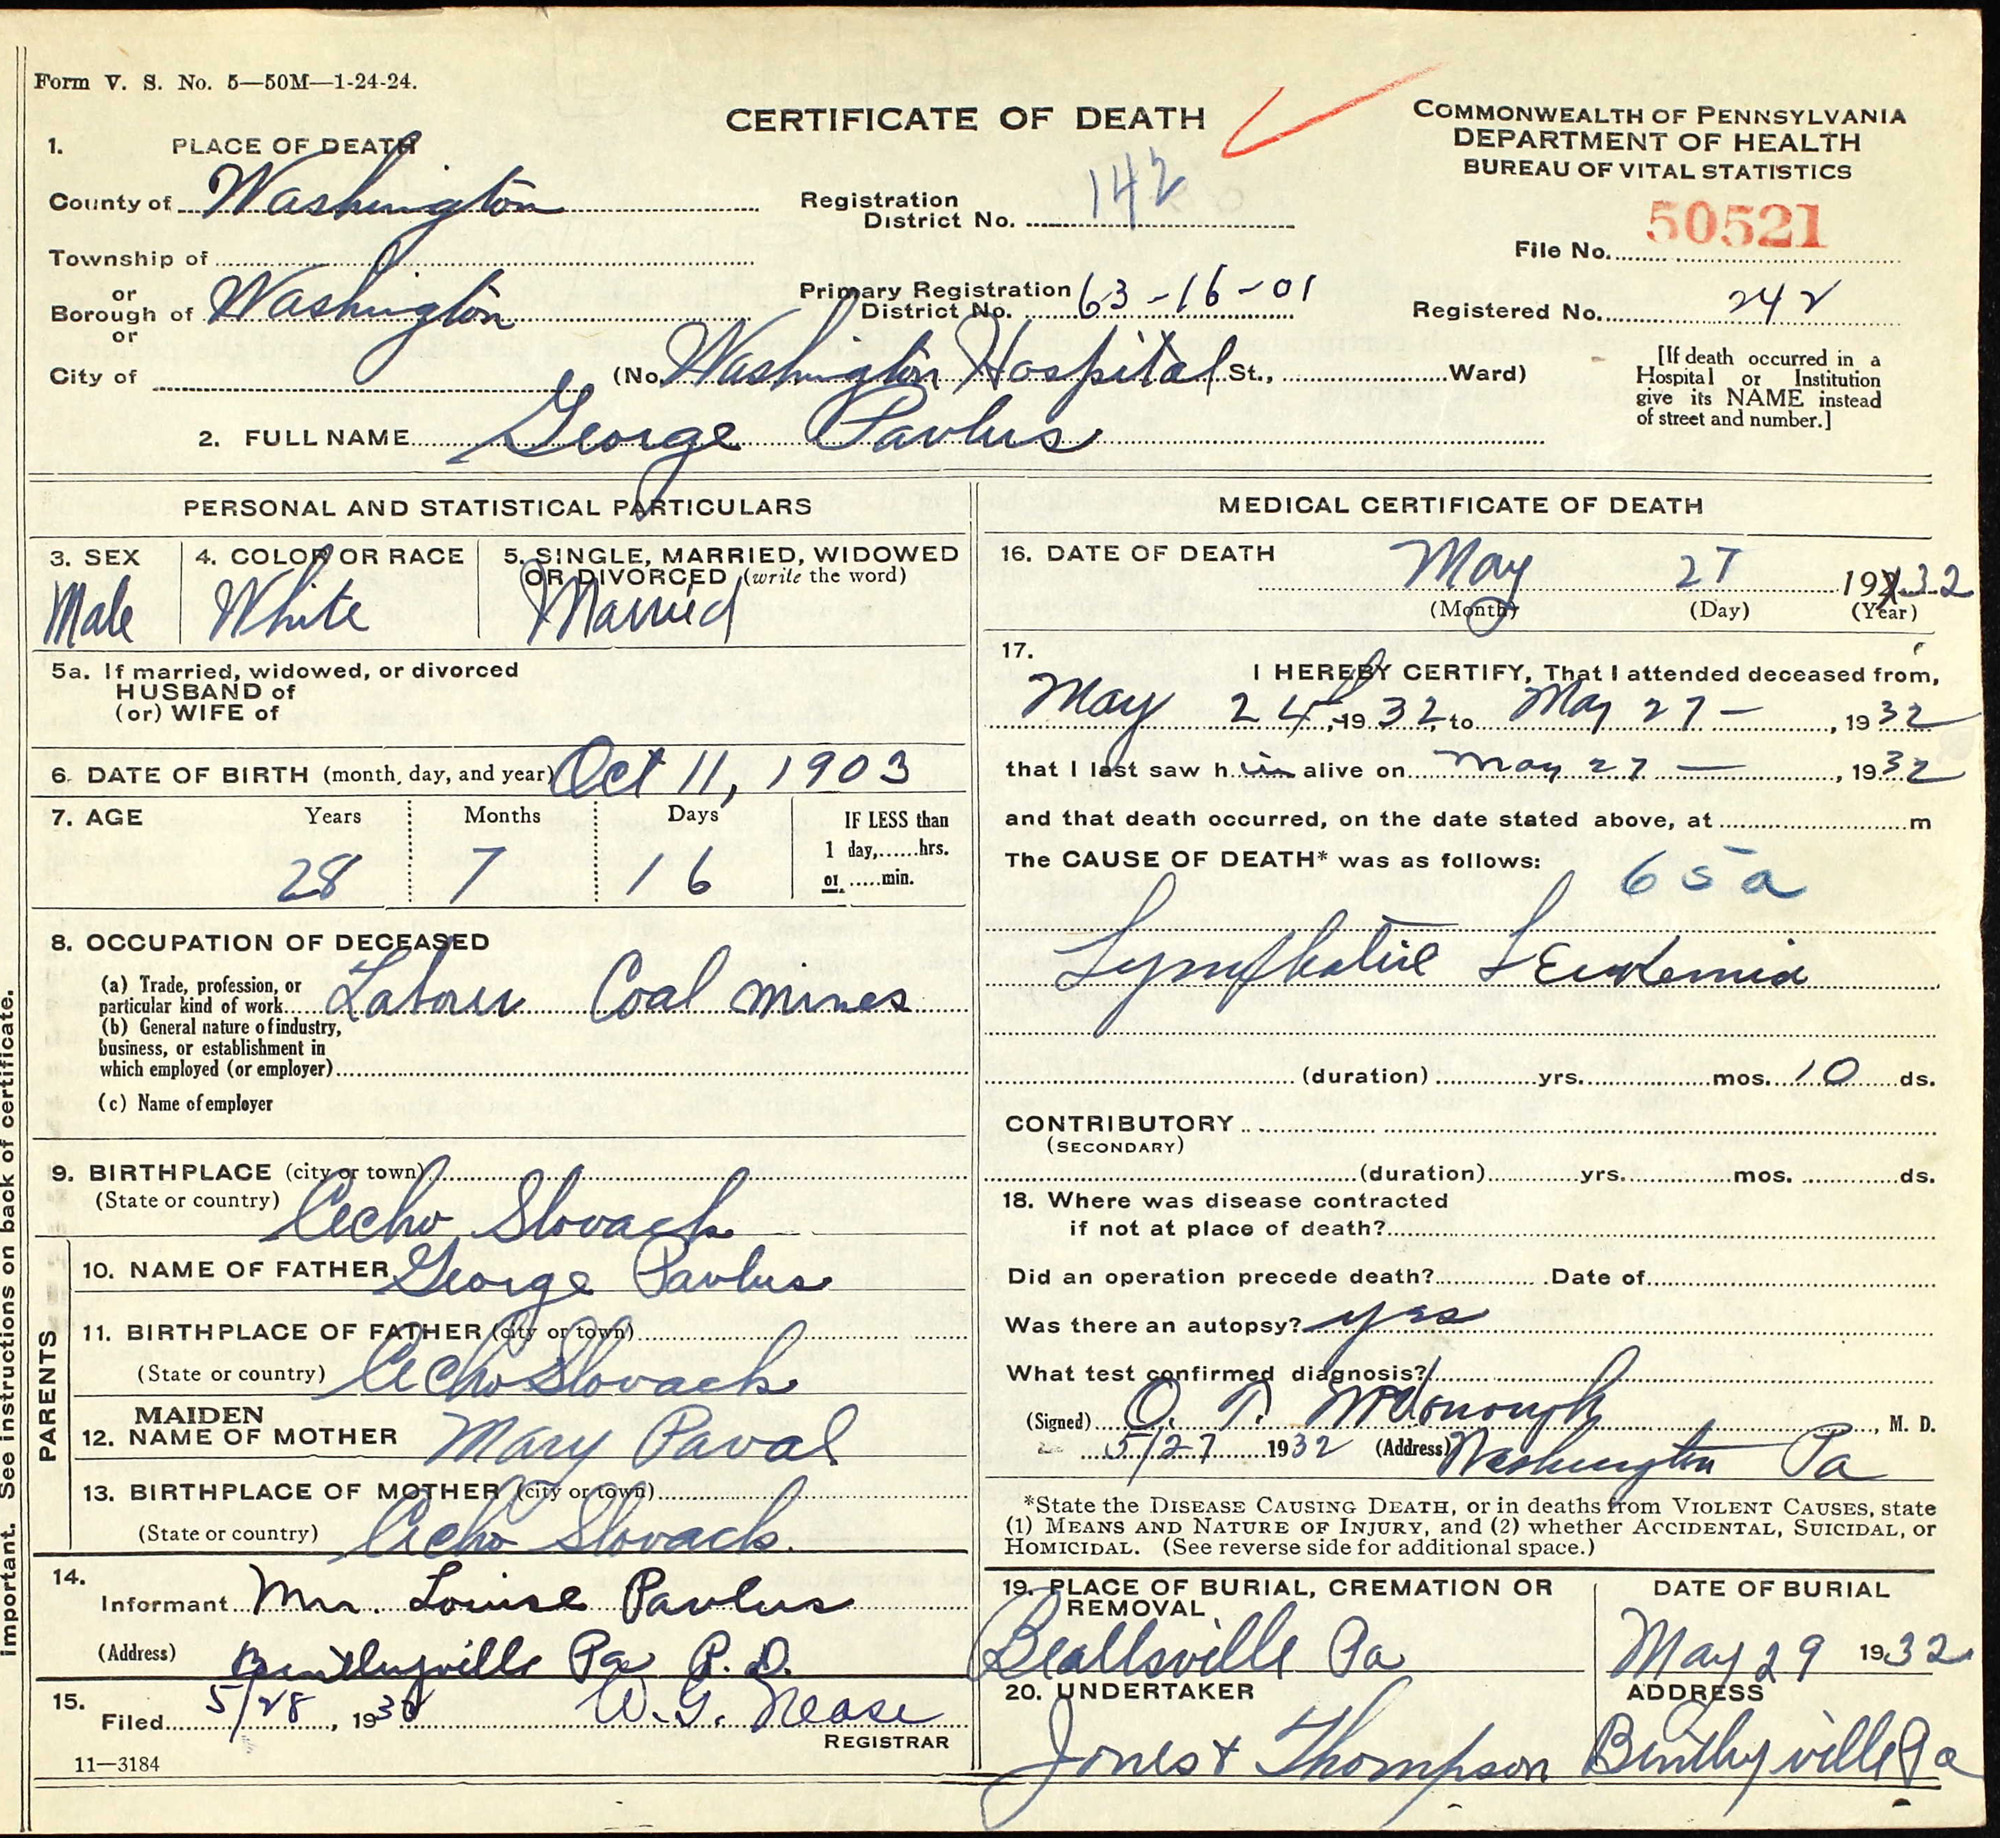 Form V. S. No. 5—50M—1-24-24.
CERTIFICATE OF DEATH
COMMONWEALTH OF PENNSYLVANIA
DEPARTMENT OF HEALTH
BUREAU OF VITAL STATISTICS
1. PLACE OF DEATH
County of Washington
Registration District No. 142
File No. 50521
Township of
or
Borough of Washington
Primary Registration District No. 63-16-01
Registered No. 242
or
City of
(No. Washington Hospital St., Ward)
[If death occurred in a
Hospital or Institution
give its NAME instead
of street and number.]
2. FULL NAME George Pavlus
PERSONAL AND STATISTICAL PARTICULARS
3. SEX
Male
4. COLOR OR RACE
White
5. SINGLE, MARRIED, WIDOWED
OR DIVORCED (write the word)
Married
5a. If married, widowed, or divorced
HUSBAND of
(or) WIFE of
6. DATE OF BIRTH (month, day, and year) Oct 11, 1903
7. AGE Years Months Days
28 7 16
IF LESS than
1 day, hrs.
or min.
8. OCCUPATION OF DECEASED
(a) Trade, profession, or
particular kind of work Laborer Coal mines
(b) General nature of industry,
business, or establishment in
which employed (or employer)
(c) Name of employer
9. BIRTHPLACE (city or town)
(State or country) Cecho Slovack
PARENTS
10. NAME OF FATHER George Pavlus
11. BIRTHPLACE OF FATHER (city or town)
(State or country) Cecho Slovack
12. MAIDEN NAME OF MOTHER Mary Paval
13. BIRTHPLACE OF MOTHER (city or town)
(State or country) Cecho Slovack.
14.
Informant Mrs. Louise Pavlus
(Address) Bentleyville Pa R.D.
15.
Filed 5/28, 1932 W. G. Nease
REGISTRAR
11—3184
MEDICAL CERTIFICATE OF DEATH
16. DATE OF DEATH May 27 1932
(Month) (Day) (Year)
17.
I HEREBY CERTIFY, That I attended deceased from,
May 24th, 1932, to May 27 —, 1932
that I last saw him alive on May 27 —, 1932
and that death occurred, on the date stated above, at m
The CAUSE OF DEATH* was as follows:
65a
Lymphatic Leukemia
(duration) yrs. mos. 10 ds.
CONTRIBUTORY
(SECONDARY)
(duration) yrs. mos. ds.
18. Where was disease contracted
if not at place of death?
Did an operation precede death? Date of
Was there an autopsy? yes
What test confirmed diagnosis?
(Signed) O. T. McDonough, M. D.
5/27 1932 (Address) Washington Pa
*State the DISEASE CAUSING DEATH, or in deaths from VIOLENT CAUSES, state
(1) MEANS AND NATURE OF INJURY, and (2) whether ACCIDENTAL, SUICIDAL, or
HOMICIDAL. (See reverse side for additional space.)
19. PLACE OF BURIAL, CREMATION OR
REMOVAL
Beallsville Pa
DATE OF BURIAL
May 29 1932
20. UNDERTAKER
Jones & Thompson
ADDRESS
Bentleyville Pa
Important. See instructions on back of certificate.